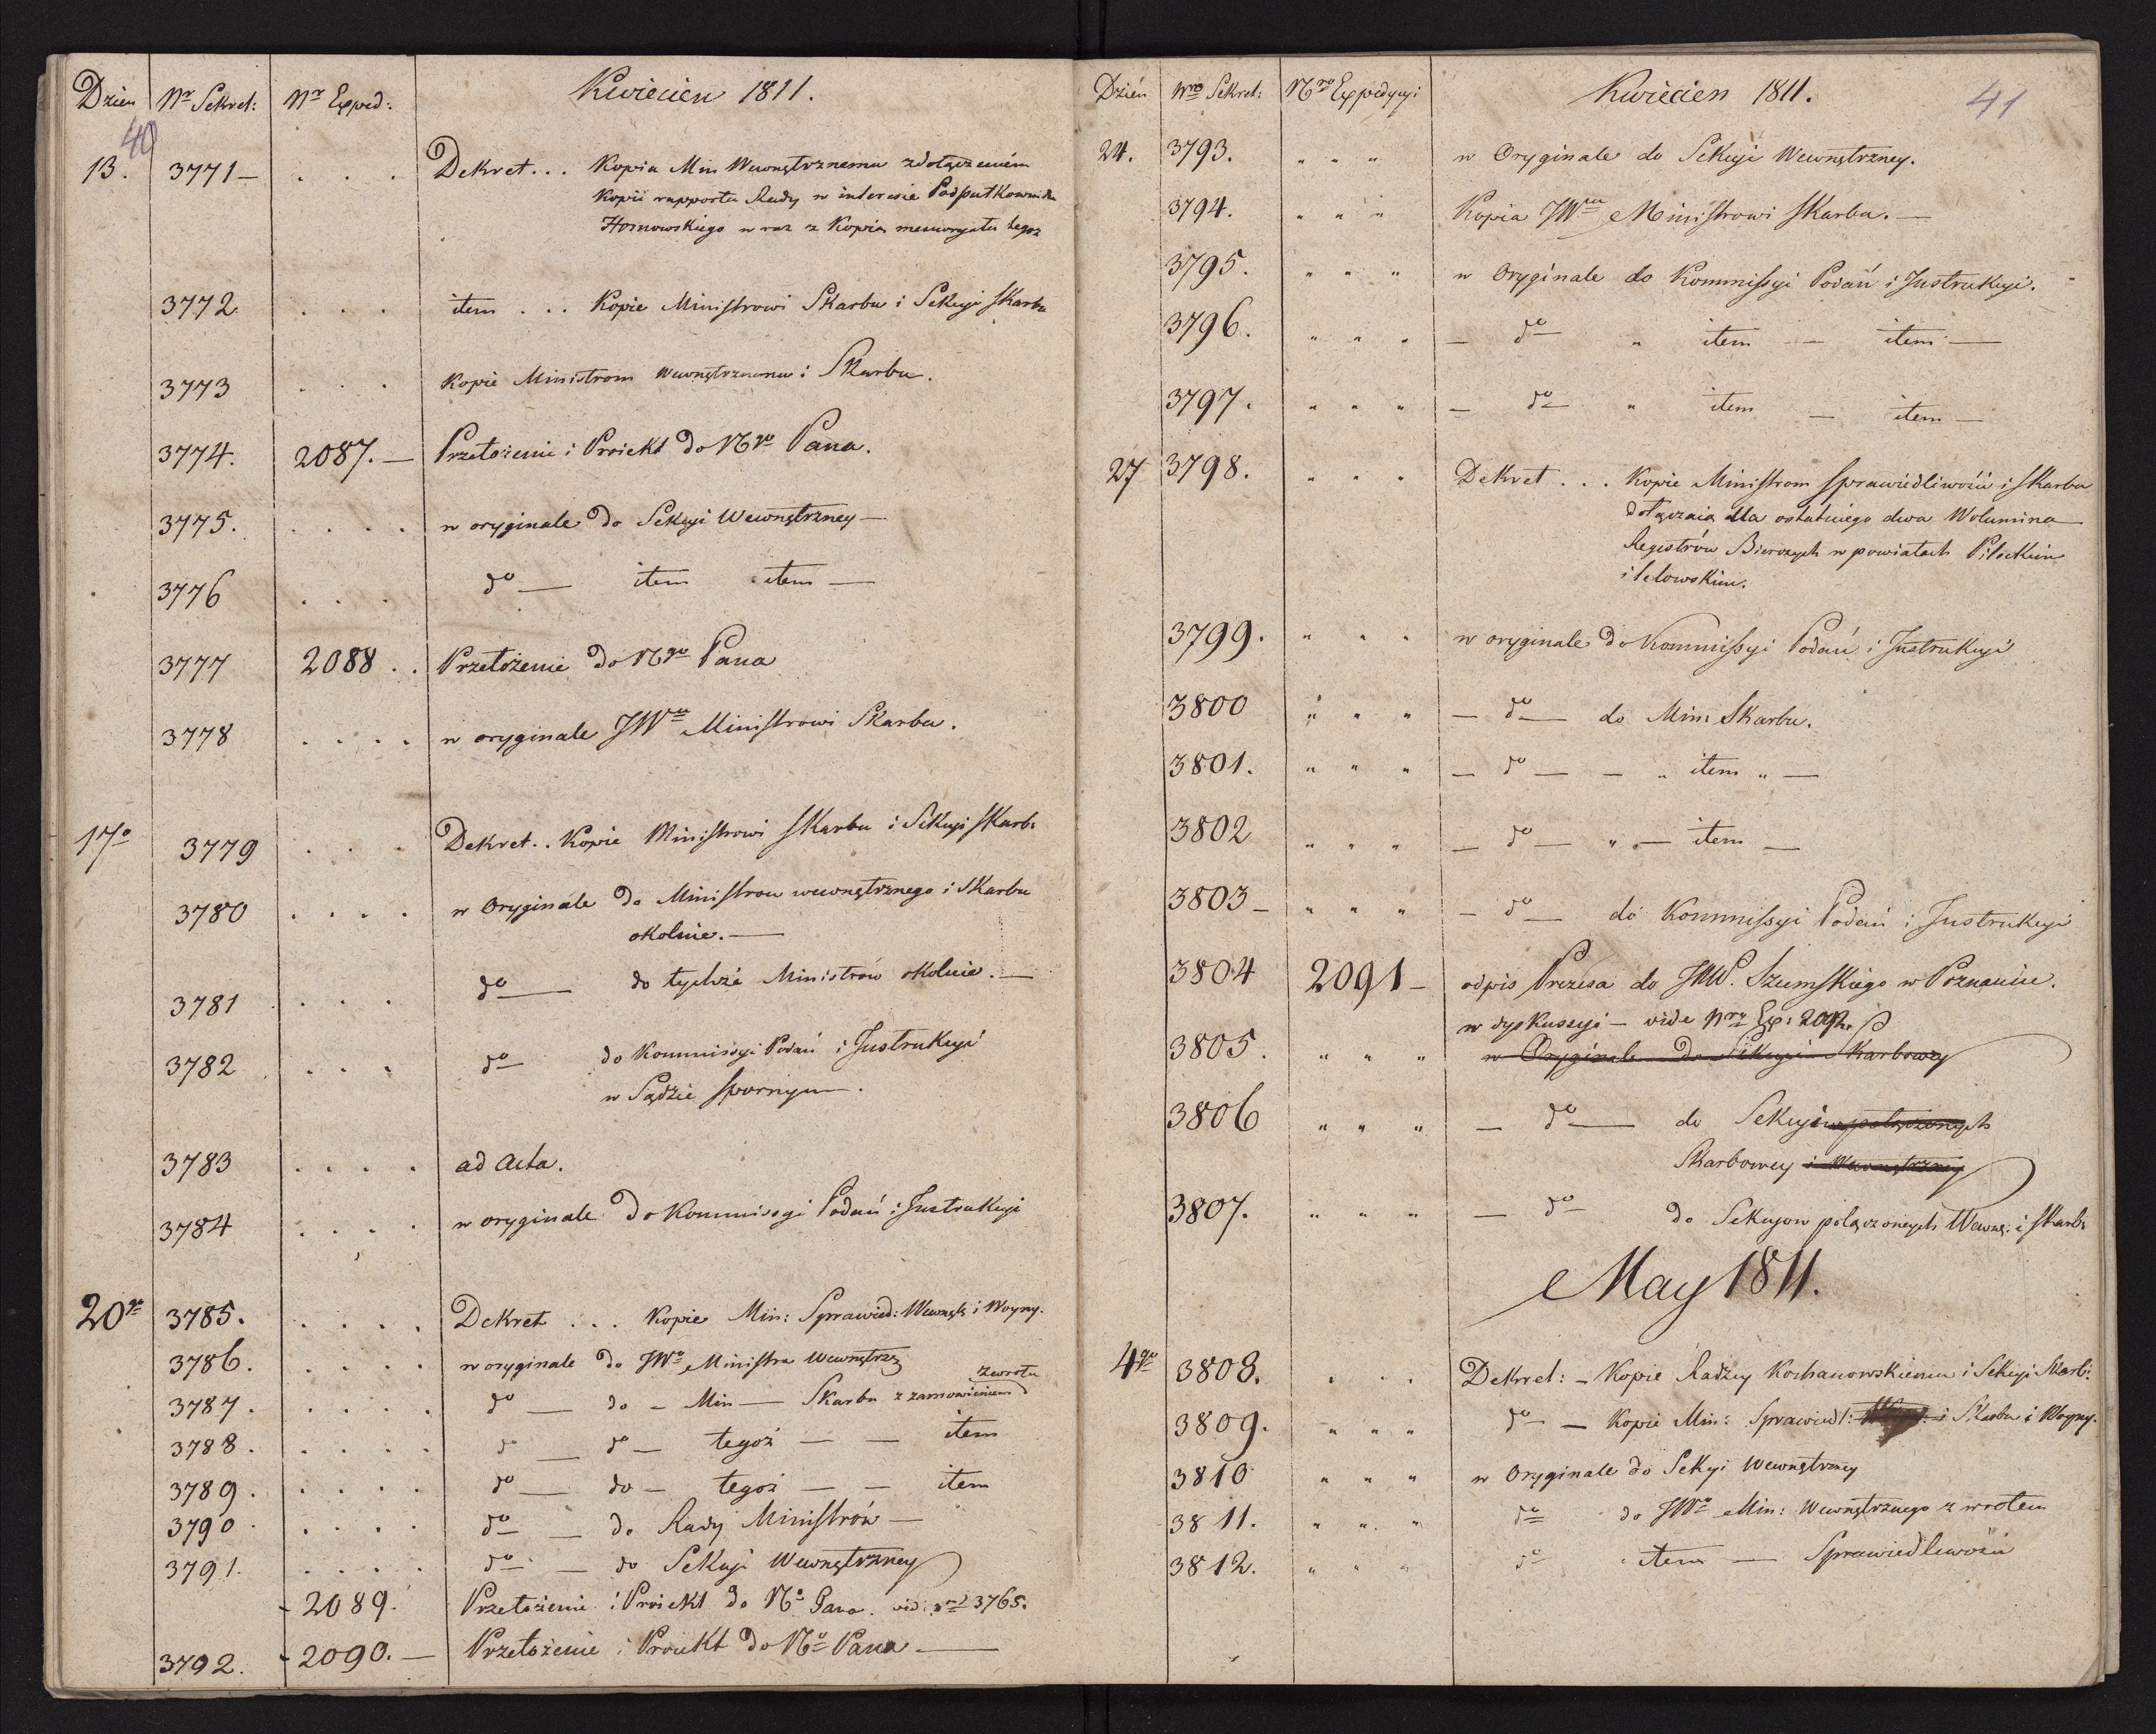 Dzien Nr Sekret: Nr Exped: Kwiecien 1811.
40
13. 3771 – . . . Dekret . . . Kopia Min Wewnętrznemu z dołączeniém
Kopii rapportu Rady w interesie Podpułkownika
Hornowskiego w raz z Kopią memoryału tegoż
3772 . . . item . . . Kopie Ministrowi Skarbu i Sekcyi Skarbu
3773 . . . Kopie Ministrom Wewnętrznemu i Skarbu.
3774. 2087. – Przełożenie i Proiekt do Ngo Pana.
3775. . . . . w oryginale do Sekcyi Wewnętrzney –
3776 . . . do – item item –
3777 2088 . . Przełożenie do Ngo Pana
3778 . . . . w oryginale JWu Ministrowi Skarbu.
17o 3779 . . . Dekret . . Kopie Ministrowi Skarbu i Sekcyi Skarb:
3780 . . . . w Oryginale do Ministrow wewnętrznego i Skarbu
okolnie. –
3781 . . . do – do tychże Ministrów okolnie. –
3782 . . . do – do Kommissyi Podań i Instrukcyi
w Sądzie spornym.
3783 . . . . ad acta.
3784 . . . . w oryginale do Kommissyi Podań i Instrukcyi
20go 3785. . . . . Dekret . . . Kopie Min: Sprawied: Wewnęt: i Woyny.
3786. . . . . w oryginale do JWo Ministra Wewnętrz
zwrotu
3787. . . . . do – do – Min – Skarbu z zamowieniem
3788. . . . . do – do – tegoż – – item
3789. . . . . do – do – tegoż – – item
3790 . . . . do – – do Rady Ministrów –
3791. . . . . do – – do Sekcyi Wewnętrzney
- 2089. Przełożenie i Proiekt do No Pana. vid: nro 3765.
3792. - 2090. – Przełożenie i Proiekt do No Pana –
Dzień Nro Sekret: Nro Expedycyi Kwiecien 1811. 41
24. 3793. " " " w Oryginale do Sekcyi Wewnętrzney.
3794. " " " Kopia JWmu Ministrowi Skarbu. –
3795. " " " w Oryginale do Kommissyi Podań i Instrukcyi.
3796. " " " – do – " item – item –
3797. " " " – do – " item – item –
27 3798. " " " Dekret . . . Kopie Ministrom sprawiedliwości i skarbu
dołączaią dla ostatniego dwa Wolumina
Regestrów Bierczych w powiatach Pileckim
i Lelowskim.
3799. " " " w oryginale do Kommissyi Podań i Instrukcyi
3800 " " " – do – do Min: Skarbu.
3801. " " " – do – – " item " –
3802 " " " – do – " – item –
3803 – " " " – do – do Kommissyi Podań i Instrukcyi
3804 2091 – odpis Prezesa do JMP. Szumskiego w Poznaniu.
w dyskussyi – vide Nro Exp: 2092.
3805. " " " w Oryginale do Sekcyi Skarbowey
3806 " " " – do – do Sekcyiow połączonych
Skarbowey i Wewnętrzney
3807. " " " – do – do Sekcyow połączonych Wewnę. i skarb:
May 1811.
4go 3808. . . . Dekret: – Kopie Radzcy Kochanowskiemu i Sekcyi Skarb:
3809. " " " do – – Kopie Min: Sprawiedl: i Skarbu i Woyny.
3810 " " " w Oryginale do Sekcyi Wewnętrzney
3811. " " " do do JWo Min: Wewnętrznego z wrotem
3812. " " " do item – Sprawiedliwości